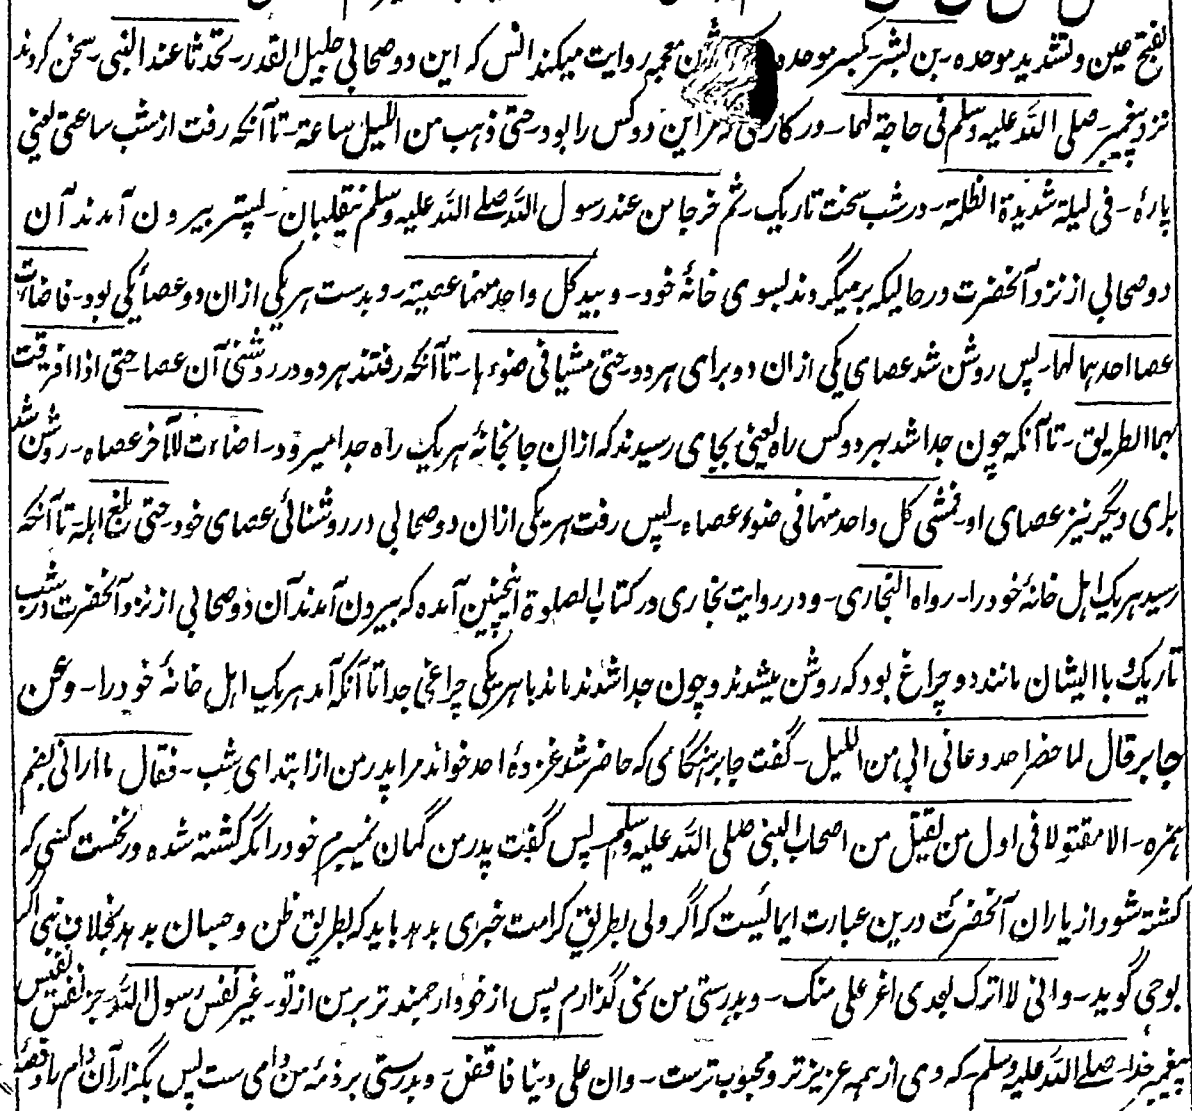 بفتح عین و تشدید موحده۔ بن بشر بکسر موحده و شین معجمه روایت میکند انس که این دو صحابی جلیل القدر۔ تحدثا عند النبی۔ سخن کردند
نزد پیغمبر۔ صلی الله علیه وسلم فی حاجة لهما۔ در کاری که مر این دو کس را بود۔ حتی ذهب من اللیل ساعة۔ تا آنکه رفت از شب ساعتی یعنی
پارهٔ۔ فی لیلة شدیدة الظلمة۔ در شب سخت تاریک۔ ثم خرجا من عند رسول الله صلے الله علیه وسلم ینقلبان۔ پستر بیرون آمدند آن
دو صحابی از نزد آنحضرت در حالیکه برمیگردند بسوی خانهٔ خود۔ و بید کل واحد منهما عصیة۔ و بدست هر یکی از ان دو عصائکی بود۔ فاضاءت
عصا احدهما لهما۔ پس روشن شد عصای یکی از ان دو برای هر دو۔ حتی مشیا فی ضوءها۔ تا آنکه رفتند هر دو در روشنی آن عصا۔ حتی اذا افترقت
بهما الطریق۔ تا آنکه چون جدا شد بهر دو کس راه یعنی بجای رسیدند که از ان جا بخانهٔ هر یک راه جدا میرود۔ اضاءت للآخر عصاه۔ روشن شد
برای دیگر نیز عصای او۔ فمشی کل واحد منهما فی ضوء عصاه۔ پس رفت هر یکی از ان دو صحابی در روشنائی عصای خود۔ حتی بلغ اهله۔ تا آنکه
رسید هر یک اهل خانهٔ خود را۔ رواه البخاری۔ و در روایت بخاری در کتاب الصلوة اینچنین آمده که بیرون آمدند آن دو صحابی از نزد آنحضرت در شب
تاریک و با ایشان مانند دو چراغ بود که روشن میشدند و چون جدا شدند ماند با هر یکی چراغی جدا تا آنکه آمد هر یک اهل خانهٔ خود را۔ وعن
جابر قال لما حضر احد دعانی ابی من اللیل۔ گفت جابر هنگامی که حاضر شد غزوهٔ احد خواند مرا پدر من از ابتدای شب۔ فقال ما ارانی بضم
همزه۔ الا مقتولا فی اول من یقتل من اصحاب النبی صلی الله علیه وسلم۔ پس گفت پدر من گمان نمیبرم خود را مگر کشته شده در نخست کسی که
کشته شود از یاران آنحضرت درین عبارت ایمائیست که اگر ولی بطریق کرامت خبری بدهد باید که بطریق ظن و حسبان بدهد بخلاف نبی اکه
بوحی گوید۔ وانی لا اترک بعدی اعز علی منک۔ و بدرستی من نمی گذارم پس از خود ارجمند تر بر من از تو۔ غیر نفس رسول الله۔ جز نفس نفیس
پیغمبر خدا۔ صلے الله علیه وسلم۔ که وی از همه عزیز تر و محبوب ترست۔ وان علی دینا فاقض۔ و بدرستی بر ذمهٔ من وامی ست پس بگزار آن وام را